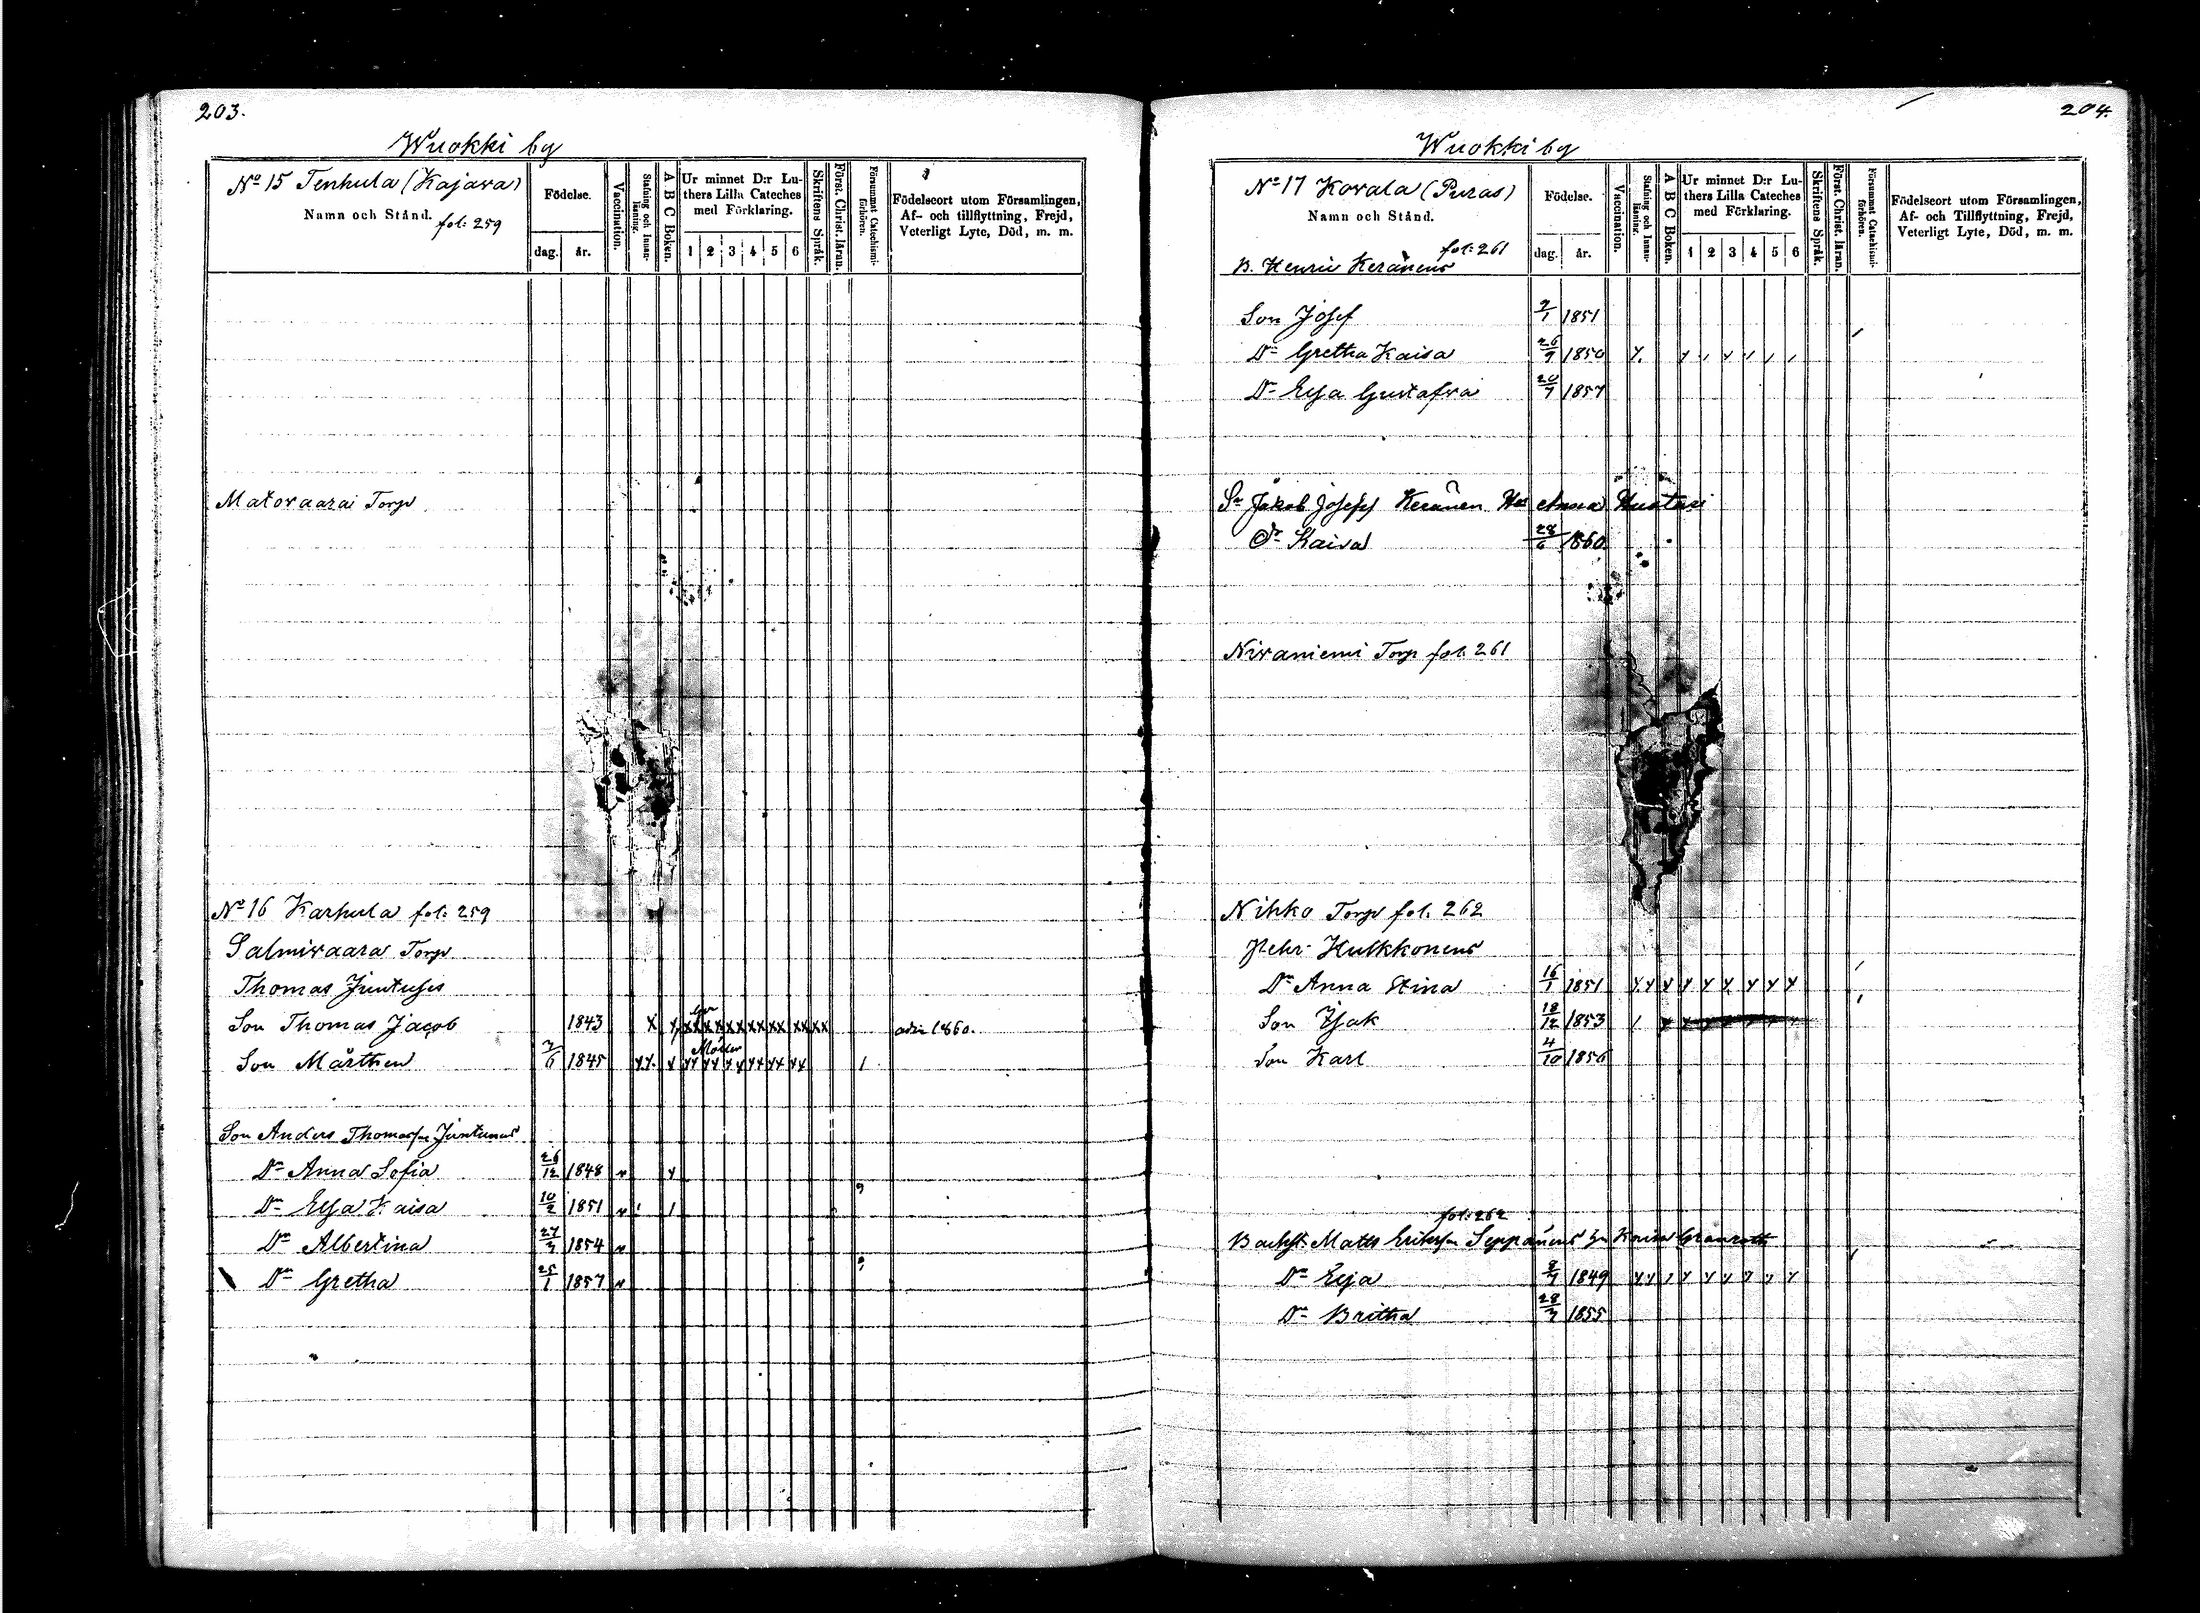 203.
Wuokki by
No 15 Tenhula (Kajava)
Namn och Stånd.
fol: 259
Födelse.
dag. år.
Vaccination.
Stafning och Innanläsning.
A B C Boken.
Ur minnet D:r Luthers Lilla Cateches med Förklaring.
1 2 3 4 5 6
Skriftens Språk.
Först. Christ. läran.
Försummat Catechismiförhören.
Födelseort utom Församlingen, Af- och tillflyttning, Frejd, Veterligt Lyte, Död, m. m.
Matovaara Torp
No 16 Karhula fol: 259
Salmivaara Torp
Thomas Juntuses
Son Thomas Jacob 1843 adm 1860.
Son Mårthen 1845
Son Anders Thomasson Juntunens
Dr Anna Sofia 26/12 1848
Dr Elsa Kaisa 10/2 1851
Dr Albertina 27/3 1854
Dr Gretha 25/1 1857
204.
Wuokki by
No 17 Kovala (Puras)
Namn och Stånd.
fol: 261
B. Henric Keränens
Födelse.
dag. år.
Vaccination.
Stafning och Innanläsning.
A B C Boken.
Ur minnet D:r Luthers Lilla Cateches med Förklaring.
1 2 3 4 5 6
Skriftens Språk.
Först. Christ. läran.
Försummat Catechismiförhören.
Födelseort utom Församlingen, Af- och Tillflyttning, Frejd, Veterligt Lyte, Död, m. m.
Son Josef 1851
Dr Gretha Kaisa 26/9 1850
Dr Elsa Gustafva 20/7 1857
Sn Jakob Josefss Keränen Hu Anna
Dr Kaisa 28/6 1860
Nivaniemi Torp fol. 261
Nihko Torp fol. 262
Pehr Hulkkonens
Dr Anna Stina 16/1 1851
Son Isak 18/12 1853
Son Karl 4/10 1856
fol: 262
Matts Eriksson Seppänens hu Kaisa Granroth
Dr Elsa 1849
Dr Britha 28/3 1855